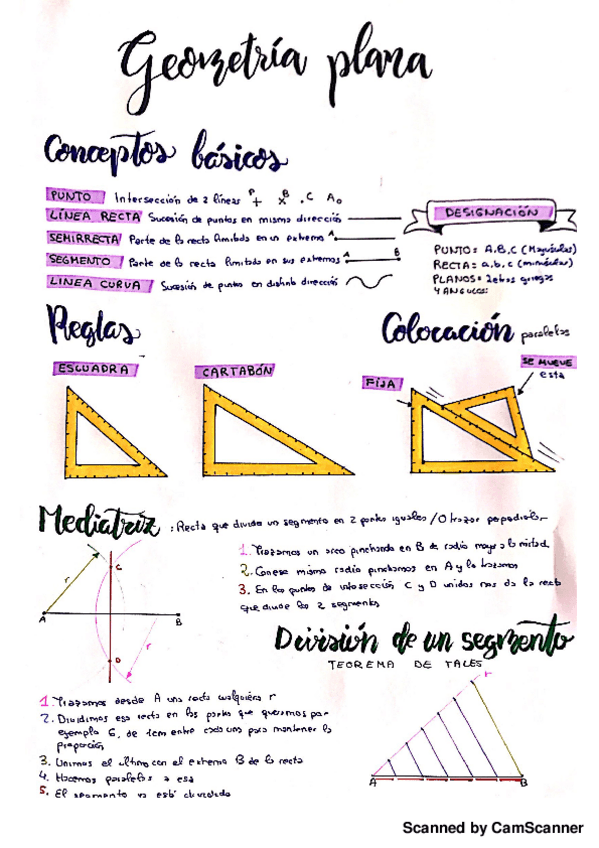 Geometría plana
Conceptos básicos
PUNTO Intersección de 2 líneas P B .C A
LÍNEA RECTA Sucesión de puntos en misma dirección
SEMIRRECTA Parte de la recta limitada en un extremo A
SEGMENTO Parte de la recta limitada en sus extremos A B
LINEA CURVA Sucesión de puntos en distinta dirección
DESIGNACIÓN
PUNTO= A.B.C (Mayúsculas)
RECTA= a.b.c (minúsculas)
PLANOS= Letras griegas
Y ANGULOS:
Reglas
Colocación paralelas
ESCUADRA
CARTABÓN
FIJA
SE MUEVE
esta
Mediatriz : Recta que divide un segmento en 2 partes iguales / O trazar perpendicular
1. Trazamos un arco pinchando en B de radio mayor a la mitad.
2. Con ese mismo radio pinchamos en A y lo trazamos
3. En los puntos de intersección C y D unidos nos da la recta
que divide los 2 segmentos
r
C
A
B
D
r
División de un segmento
TEOREMA DE TALES
1. Trazamos desde A una recta cualquiera r
2. Dividimos esa recta en las partes que queramos por
ejemplo 6, de 1cm entre cada uno para mantener la
proporción
3. Unimos el último con el extremo B de la recta
4. Hacemos paralelas a esa
5. El segmento ya está dividido
r
A
B
Scanned by CamScanner